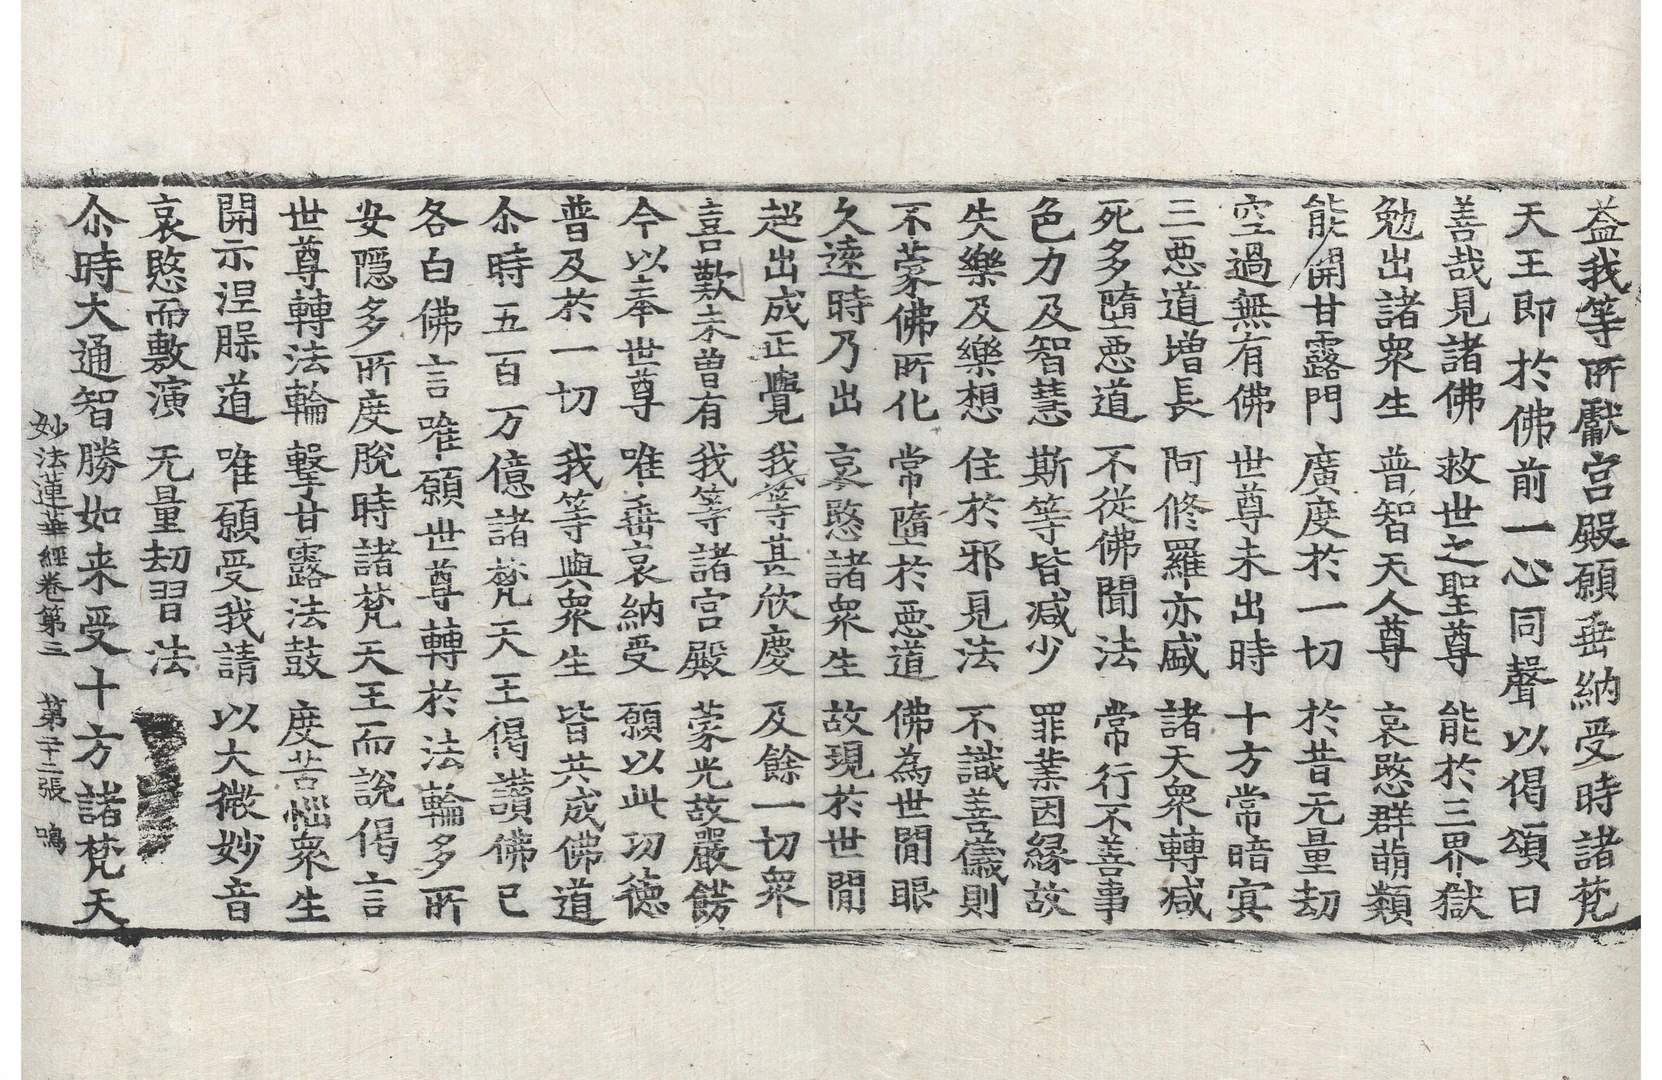 益我等所獻宮殿願垂納受時諸梵
天王即於佛前一心同聲以偈頌曰
善哉見諸佛 救世之聖尊 能於三界獄
勉出諸衆生 普智天人尊 哀愍群萌類
能開甘露門 廣度於一切 於昔无量劫
空過無有佛 世尊未出時 十方常暗冥
三惡道增長 阿修羅亦盛 諸天衆轉減
死多墮惡道 不從佛聞法 常行不善事
色力及智慧 斯等皆減少 罪業因緣故
失樂及樂想 住於邪見法 不識善儀則
不蒙佛所化 常墮於惡道 佛為世閒眼
久遠時乃出 哀愍諸衆生 故現於世閒
超出成正覺 我等甚欣慶 及餘一切衆
喜歎未曾有 我等諸宮殿 蒙光故嚴飾
今以奉世尊 唯垂哀納受 願以此功德
普及於一切 我等與衆生 皆共成佛道
尒時五百万億諸梵天王偈讚佛已
各白佛言唯願世尊轉於法輪多所
安隱多所度脫時諸梵天王而說偈言
世尊轉法輪 擊甘露法鼓 度苦惱衆生
開示涅槃道 唯願受我請 以大微妙音
哀愍而敷演 无量劫習法
尒時大通智勝如来受十方諸梵天
妙法蓮華經卷第三 第二十二張 鳴